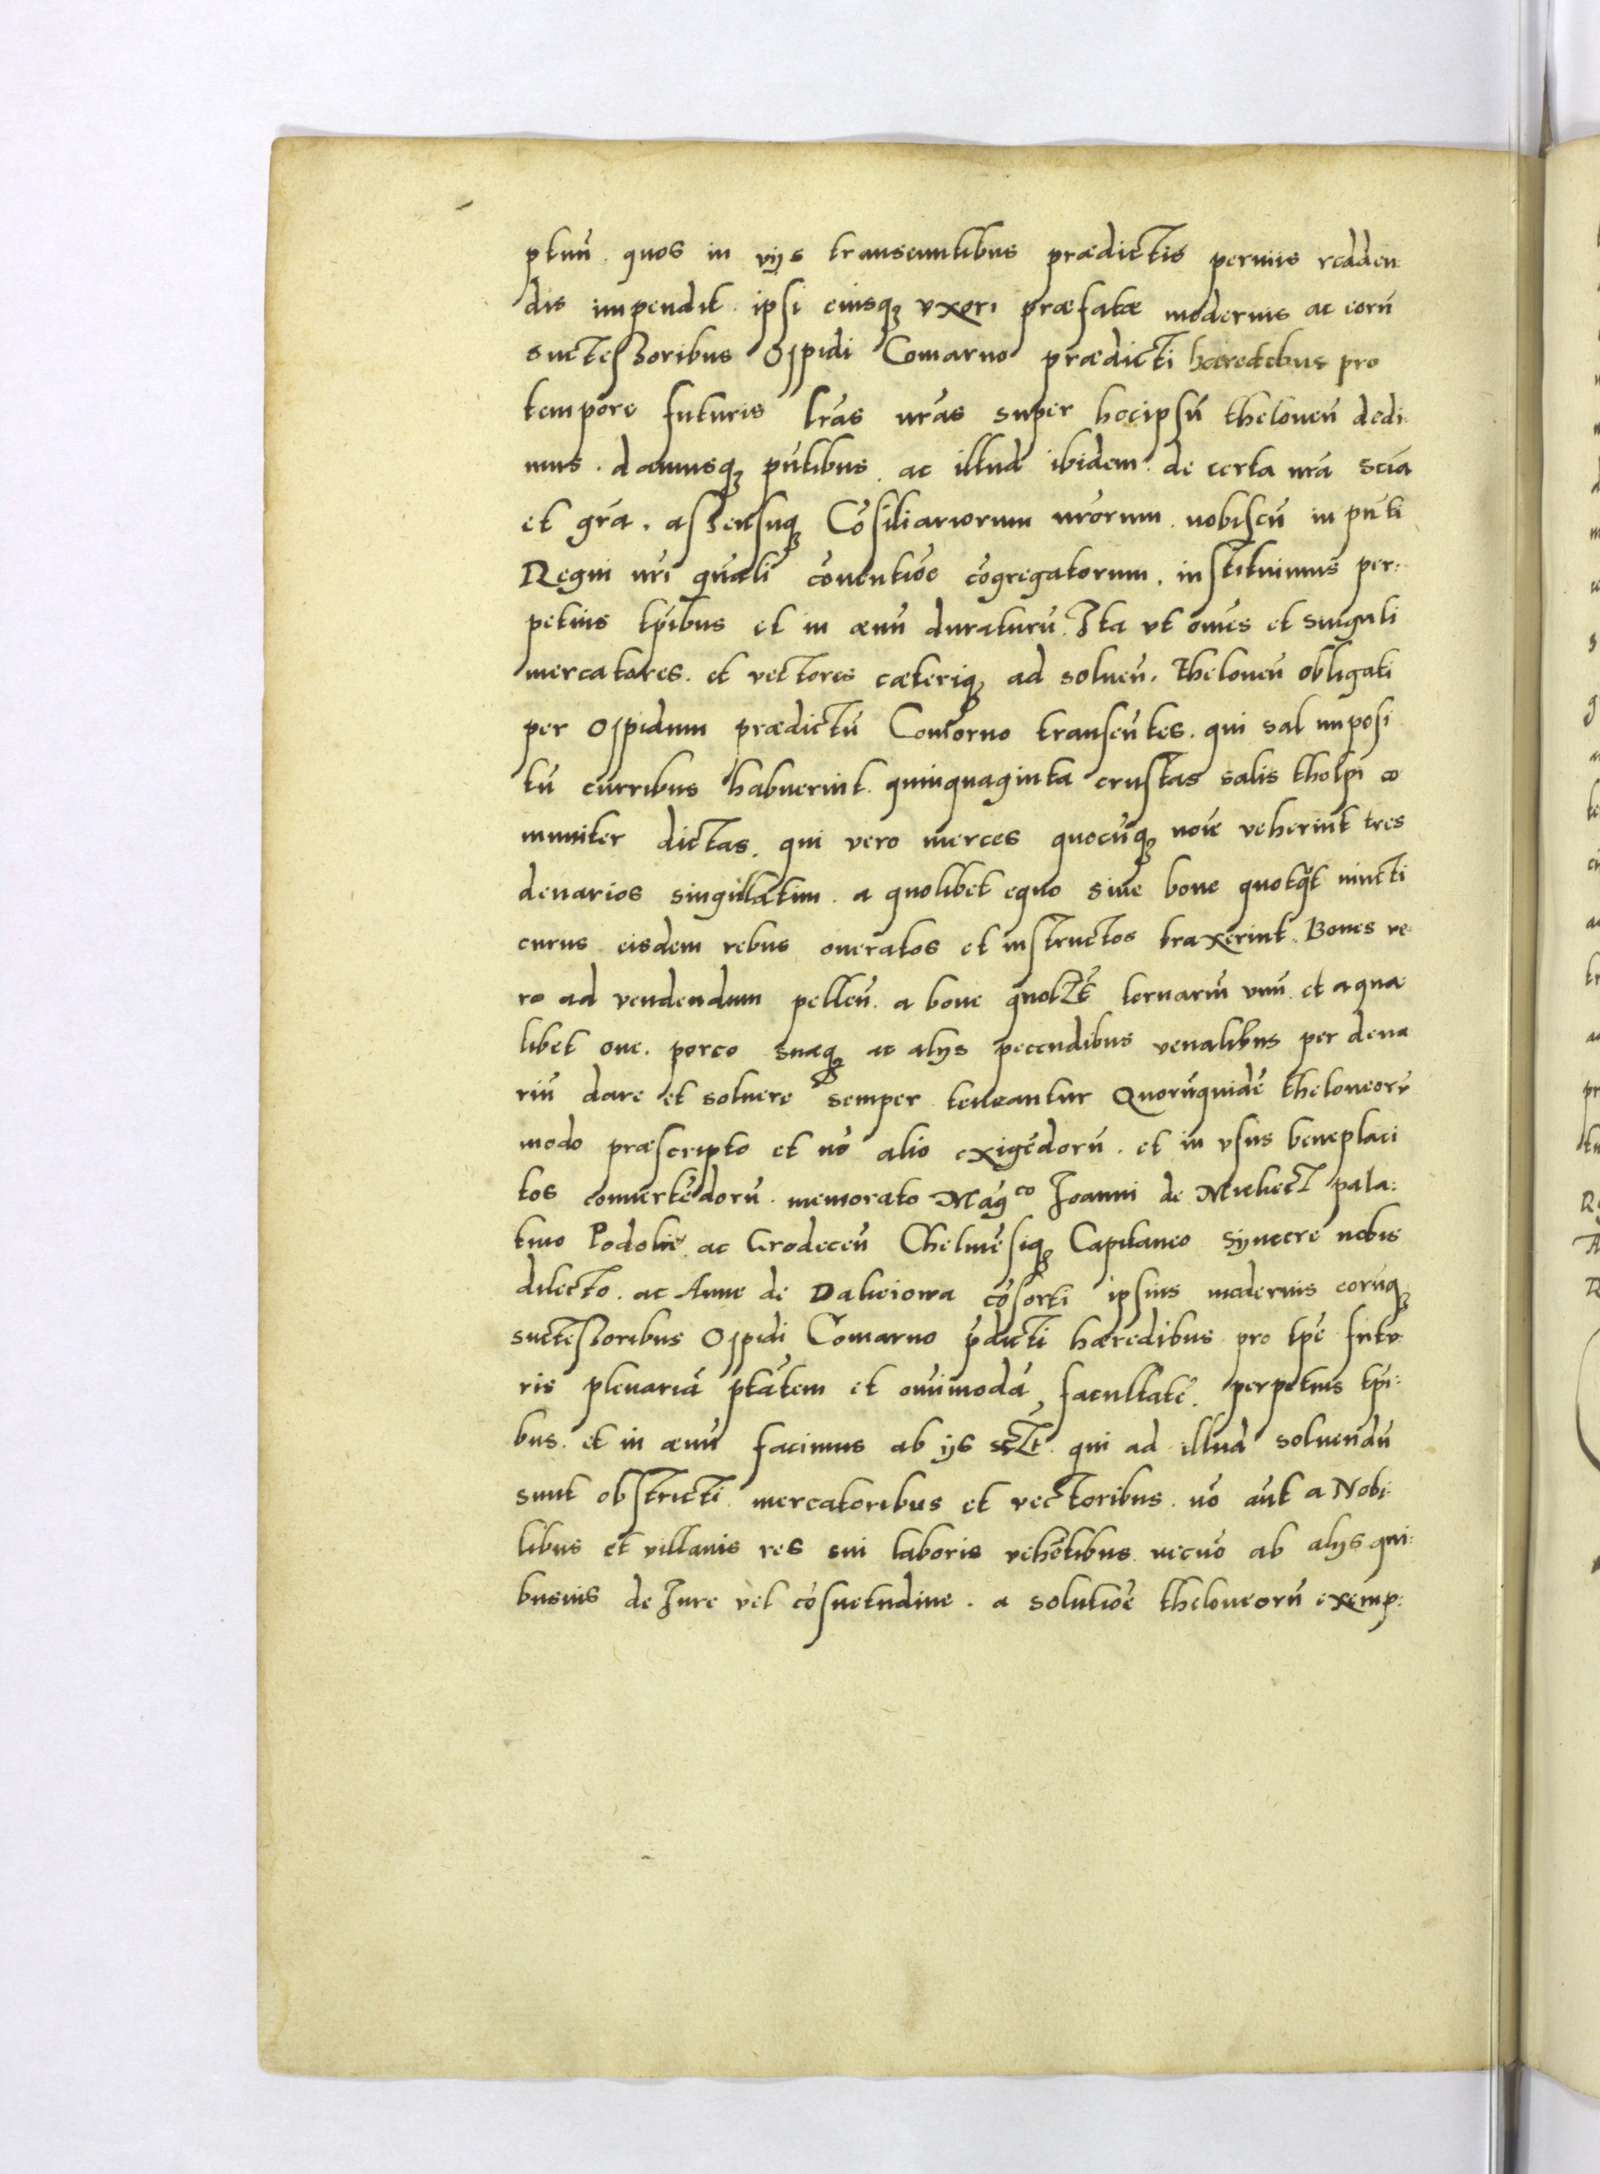 ptuū. quos in vijs transeuntibus prædictis peruijs redden
dis impendit. ipsi eiusq; vxori præfatæ modernis ac eorū
successoribus Oppidi Comarno prædicti hæredebus pro
tempore futuris lr̄as nr̄as super hocipsū theloneū dedi
mus. damusq; pn̄tibus. ac illud ibidem. de certa nr̄a scīa
et gr̄a. assensuq; Cōsiliariorum nr̄orum. nobiscū in pn̄ti
Regni nr̄i gn̄ali cōuentiōe cōgregatorum. instituimus per:
petuis tp̄ibus et in æuū duraturū. Ita vt om̄es et singuli
mercatores. et vectores cæteriq; ad soluen̄. theloneū obligati
per Oppidum prædictū Comorno transeūtes. qui sal imposi
tū curribus habuerint. quinquaginta crustas salis tholpi co
muniter dictas. qui vero merces quocūq; noīe veherint tres
denarios singillatim. a quolibet equo siue boue quotq̄t iuncti
currus eisdem rebus oneratos et instructos traxerint. Boues ve
ro ad vendendum pellen̄. a boue quolzt̄ ternariū vnū. et a qua
libet oue. porco suaq; ac alijs pecudibus venalibus per dena
riū dare et soluere semper teneantur Quorūquidē theloneorū
modo præscripto et nō alio exigēdorū. et in vsus beneplaci
tos conuertēdorū. memorato Maḡco Joanni de Mielecz pala:
tino Podolie. ac Grodecen̄ Chelmēsiq; Capitaneo syncere nobis
dilecto. ac Anne de Daleiowa cōsorti ipsius modernis eorūq;
successoribus Oppidi Comarno p̄dicti hæredibus pro tp̄e futu
ris plenariā ptātem et om̄imodā facultatē. perpetuis tp̄i:
bus. et in æuū facimus ab ijs sczt̄. qui ad illud soluendū
sunt obstricti mercatoribus et vectoribus. nō aūt a Nobi
libus et villanis res sui laboris vehētibus necnō ab alijs qui:
busuis de Jure vel cōsuetudine. a solutiōe theloneorū exemp: